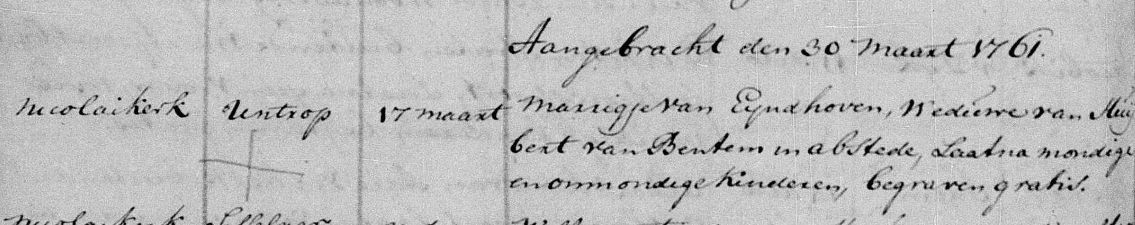 Aangebracht den 30 Maart 1761.
Nicolaikerk Untrop 17 maart Marrigje van Eyndhoven, Weduwe van Huij
bert van Bentem in abstede, Laatna mondige
en onmondige kinderen, begraven gratis.
Nicolaikerk